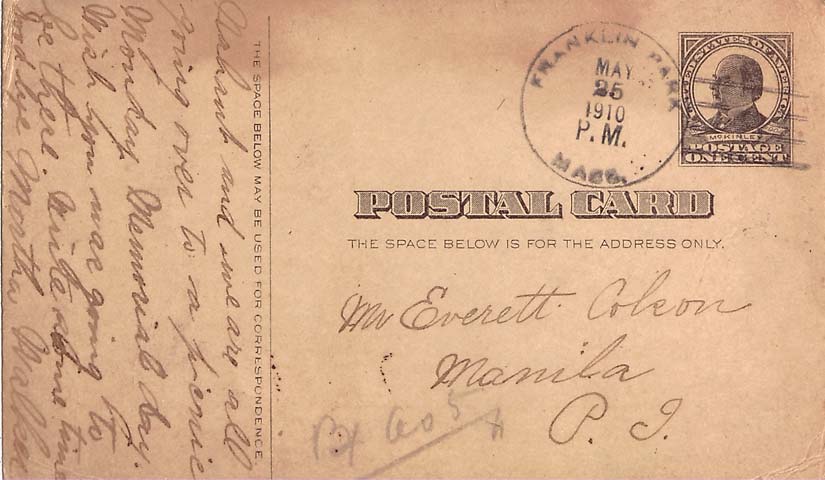 FRANKLIN PARK
MAY
25
1910
P.M.
MASS.
UNITED STATES OF AMERICA
McKINLEY
POSTAGE
ONE CENT
POSTAL CARD
THE SPACE BELOW IS FOR THE ADDRESS ONLY.
Mr Everett Colson
Manila
P. I.
Bx 605
THE SPACE BELOW MAY BE USED FOR CORRESPONDENCE.
Nahant and we are all
going over to a picnic
Monday Memorial day.
Wish you was going to
be there. Write some time
Good bye Martha Walker